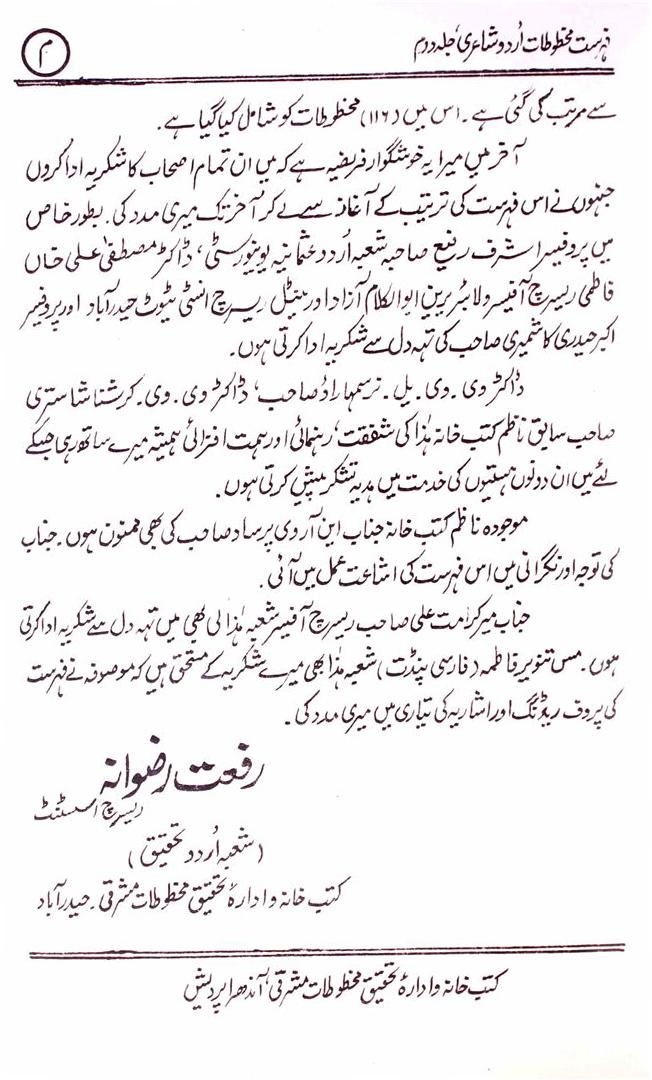 فہرست مخطوطات اُردو شاعری، جلد دوم
م
سے مرتب کی گئی ہے۔ اس میں (۱۱۶) مخطوطات کو شامل کیا گیا ہے۔
آخر میں میرا یہ خوشگوار فریضہ ہے کہ میں ان تمام اصحاب کا شکریہ ادا کروں
جنہوں نے اس فہرست کی ترتیب کے آغاز سے لے کر آخر تک میری مدد کی۔ بطور خاص
میں پروفیسر اشرف رفیع صاحبہ شعبہ اُردو عثمانیہ یونیورسٹی، ڈاکٹر مصطفٰی علی خاں
فاطمی ریسرچ آفیسر و لائبریرین ابوالکلام آزاد اورینٹل ریسرچ انسٹی ٹیوٹ حیدرآباد اور پروفیسر
اکبر حیدری کاشمیری صاحب کی تہہ دل سے شکریہ ادا کرتی ہوں۔
ڈاکٹر وی۔ وی۔ یل۔ نرسمہا راؤ صاحب، ڈاکٹر وی۔ وی۔ کرشنا شاستری
صاحب سابق ناظم کتب خانہ ہٰذا کی شفقت، رہنمائی اور ہمت افزائی ہمیشہ میرے ساتھ رہی جسکے
لئے میں ان دونوں ہستیوں کی خدمت میں ہدیہ تشکر پیش کرتی ہوں۔
موجودہ ناظم کتب خانہ جناب این آر وی پرساد صاحب کی بھی ممنون ہوں۔ جناب
کی توجہ اور نگرانی میں اس فہرست کی اشاعت عمل میں آئی۔
جناب میر کرامت علی صاحب ریسرچ آفیسر شعبہ ہٰذا کی بھی میں تہہ دل سے شکریہ ادا کرتی
ہوں۔ مس تنویر فاطمہ (فارسی پنڈت) شعبہ ہٰذا بھی میرے شکریہ کے مستحق ہیں کہ موصوفہ نے فہرست
کی پروف ریڈنگ اور اشاریہ کی تیاری میں میری مدد کی۔
رفعت رضوانہ
ریسرچ اسسٹنٹ
(شعبہ اُردو تحقیق)
کتب خانہ و ادارۂ تحقیق مخطوطات مشرقی۔ حیدرآباد
کتب خانہ و ادارۂ تحقیق مخطوطات مشرقی، آندھرا پردیش